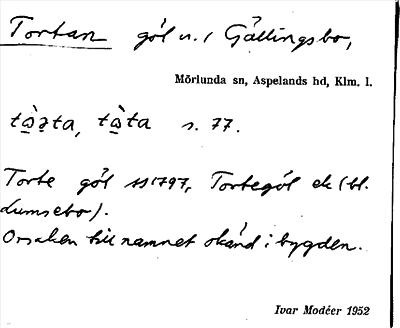 Tortan gól n. i Gällingsbo,
Mörlunda sn, Aspelands hd, Klm. l.
s. 77.
Torte gól 1797, Tortegól ek (bl.
Lumsebo).
Orsaken till namnet okänd i bygden.
Ivar Modéer 1952